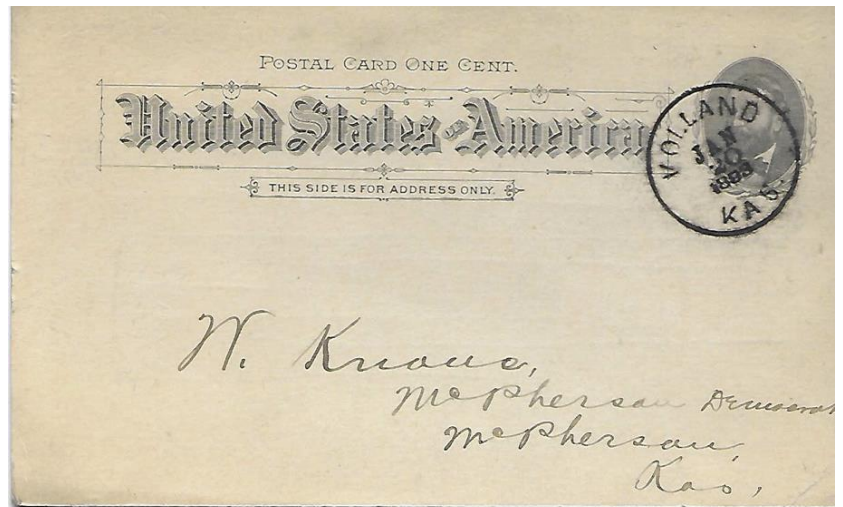 POSTAL CARD ONE CENT.
United States of America
THIS SIDE IS FOR ADDRESS ONLY.
VOLLAND
JAN
20
KAS.
W. Knaus,
McPherson Democrat
McPherson,
Kas.